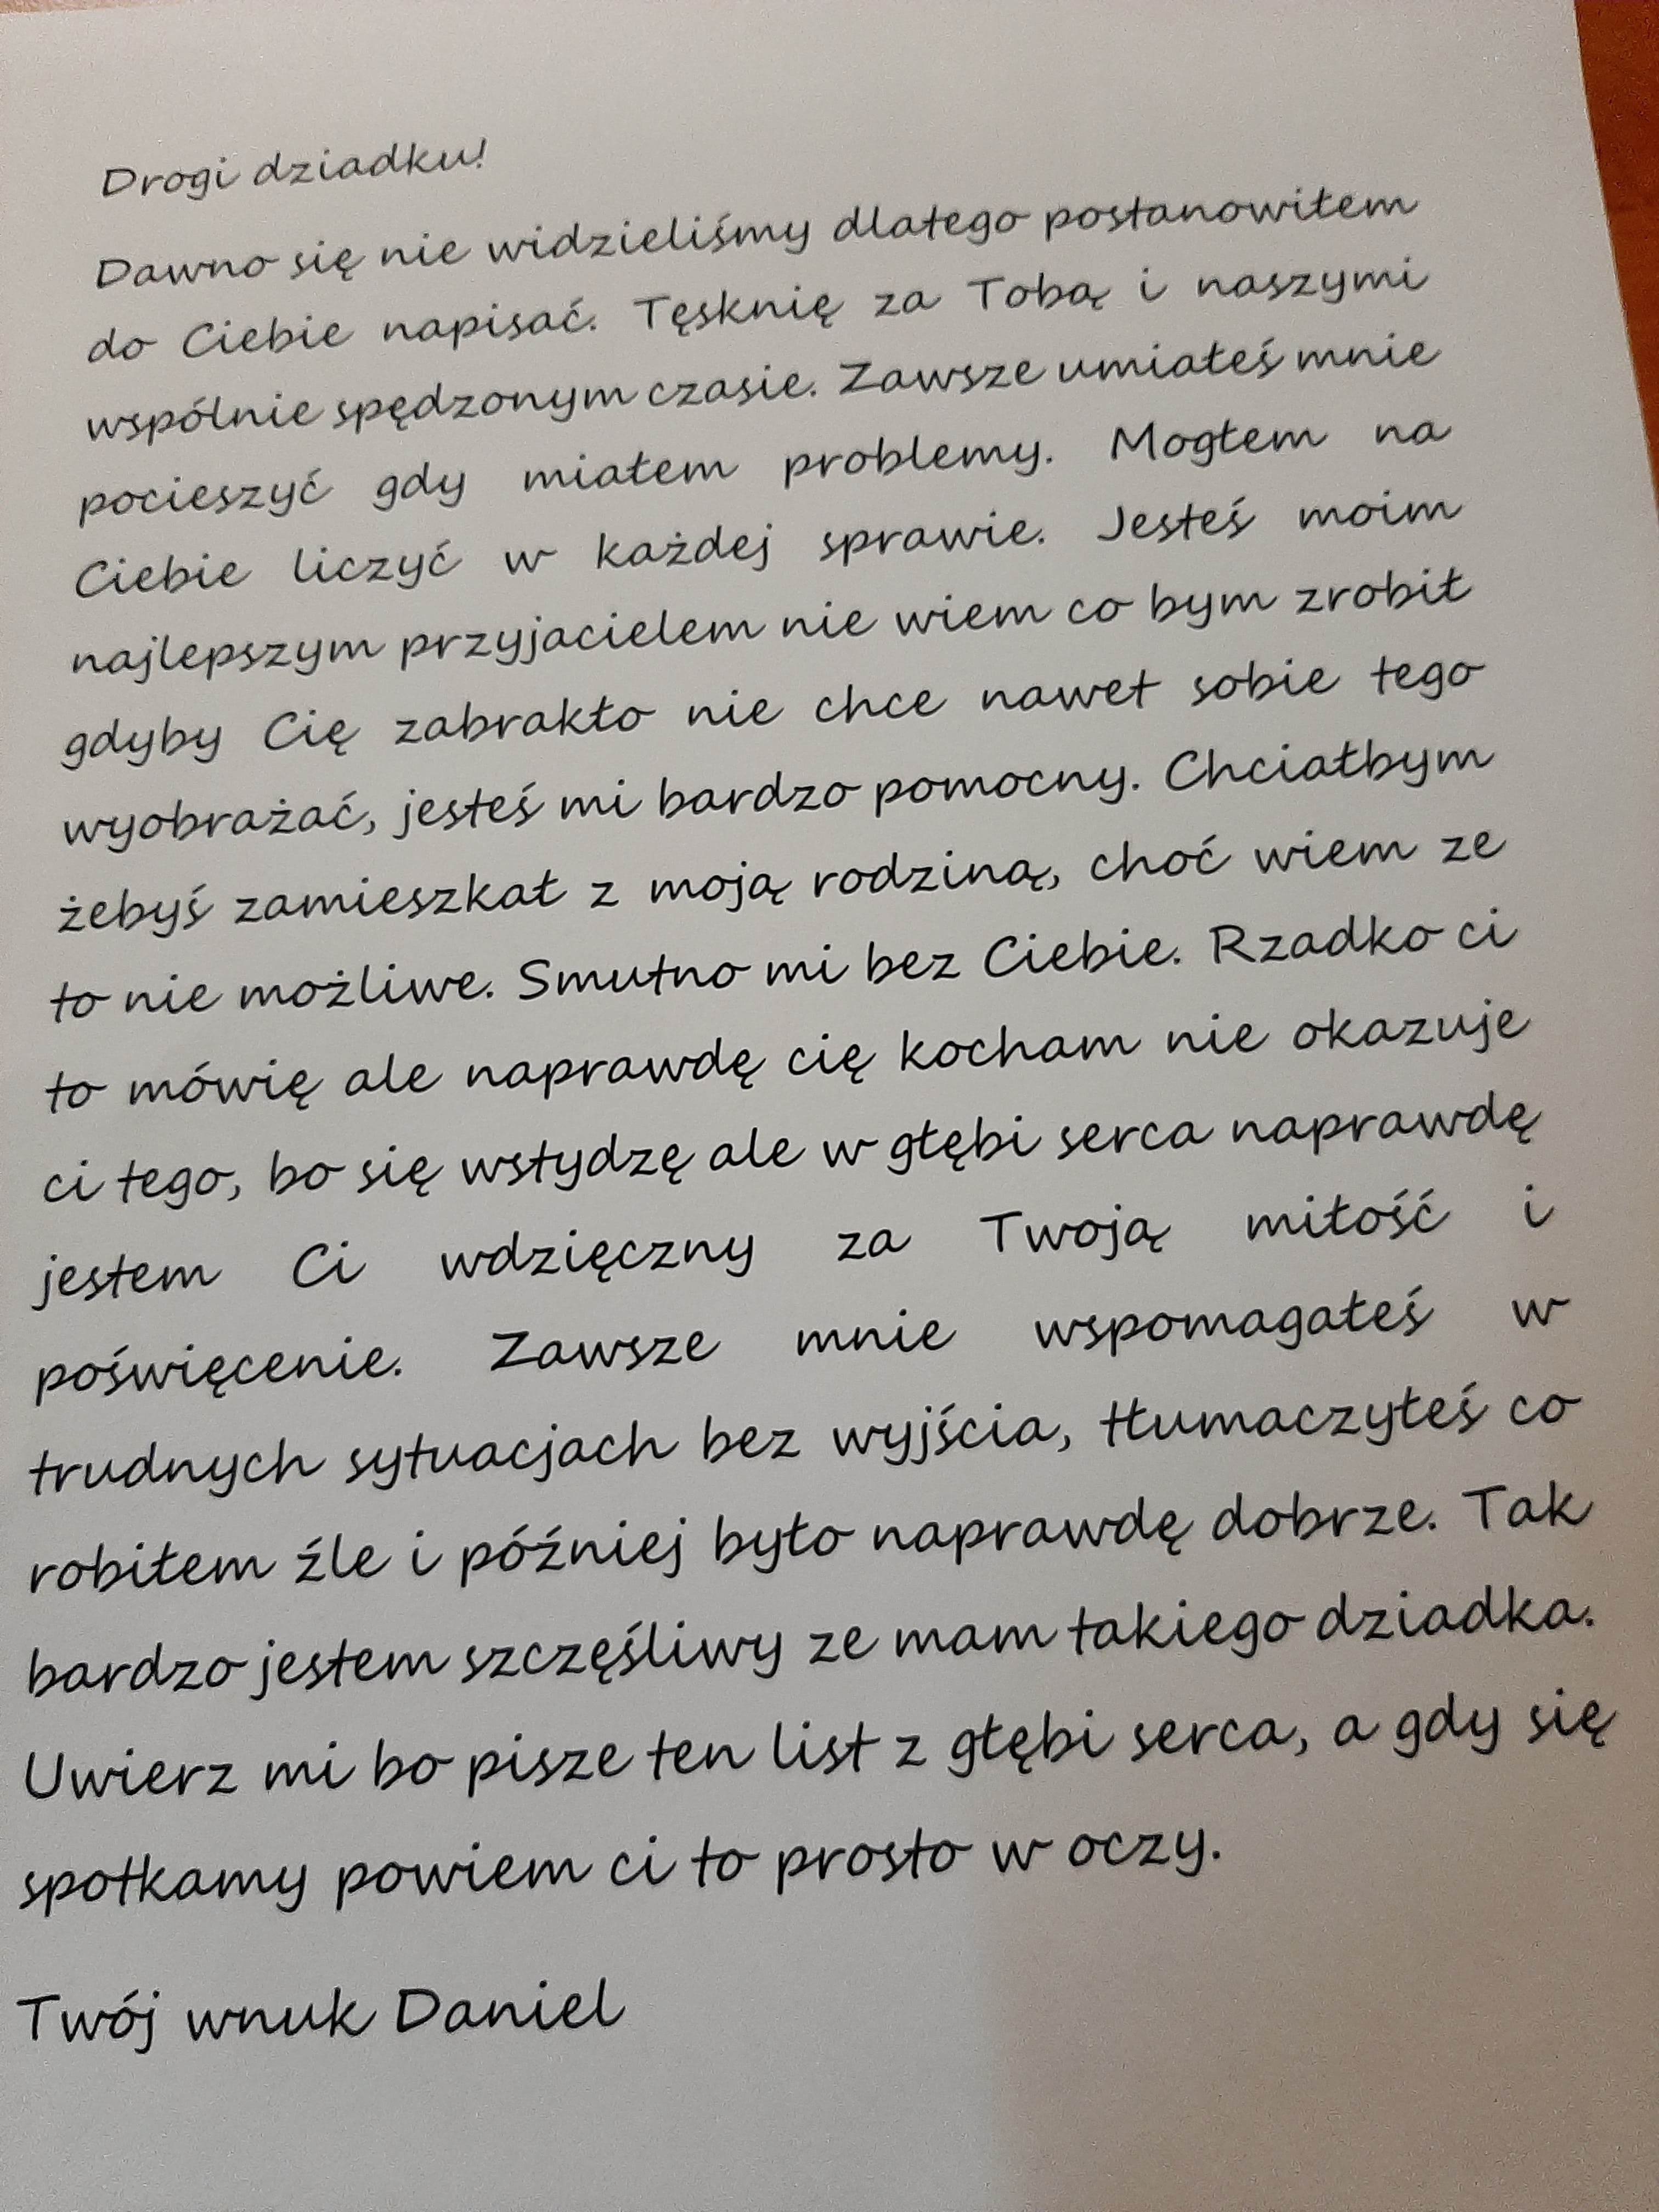 Drogi dziadku!
Dawno się nie widzieliśmy dlatego postanowiłem
do Ciebie napisać. Tęsknię za Tobą i naszymi
wspólnie spędzonym czasie. Zawsze umiałeś mnie
pocieszyć gdy miałem problemy. Mogłem na
Ciebie liczyć w każdej sprawie. Jesteś moim
najlepszym przyjacielem nie wiem co bym zrobił
gdyby Cię zabrakło nie chce nawet sobie tego
wyobrażać, jesteś mi bardzo pomocny. Chciałbym
żebyś zamieszkał z moją rodziną, choć wiem ze
to nie możliwe. Smutno mi bez Ciebie. Rzadko ci
to mówię ale naprawdę cię kocham nie okazuje
ci tego, bo się wstydzę ale w głębi serca naprawdę
jestem Ci wdzięczny za Twoją miłość i
poświęcenie. Zawsze mnie wspomagałeś w
trudnych sytuacjach bez wyjścia, tłumaczyłeś co
robiłem źle i później było naprawdę dobrze. Tak
bardzo jestem szczęśliwy ze mam takiego dziadka.
Uwierz mi bo pisze ten list z głębi serca, a gdy się
spotkamy powiem ci to prosto w oczy.
Twój wnuk Daniel